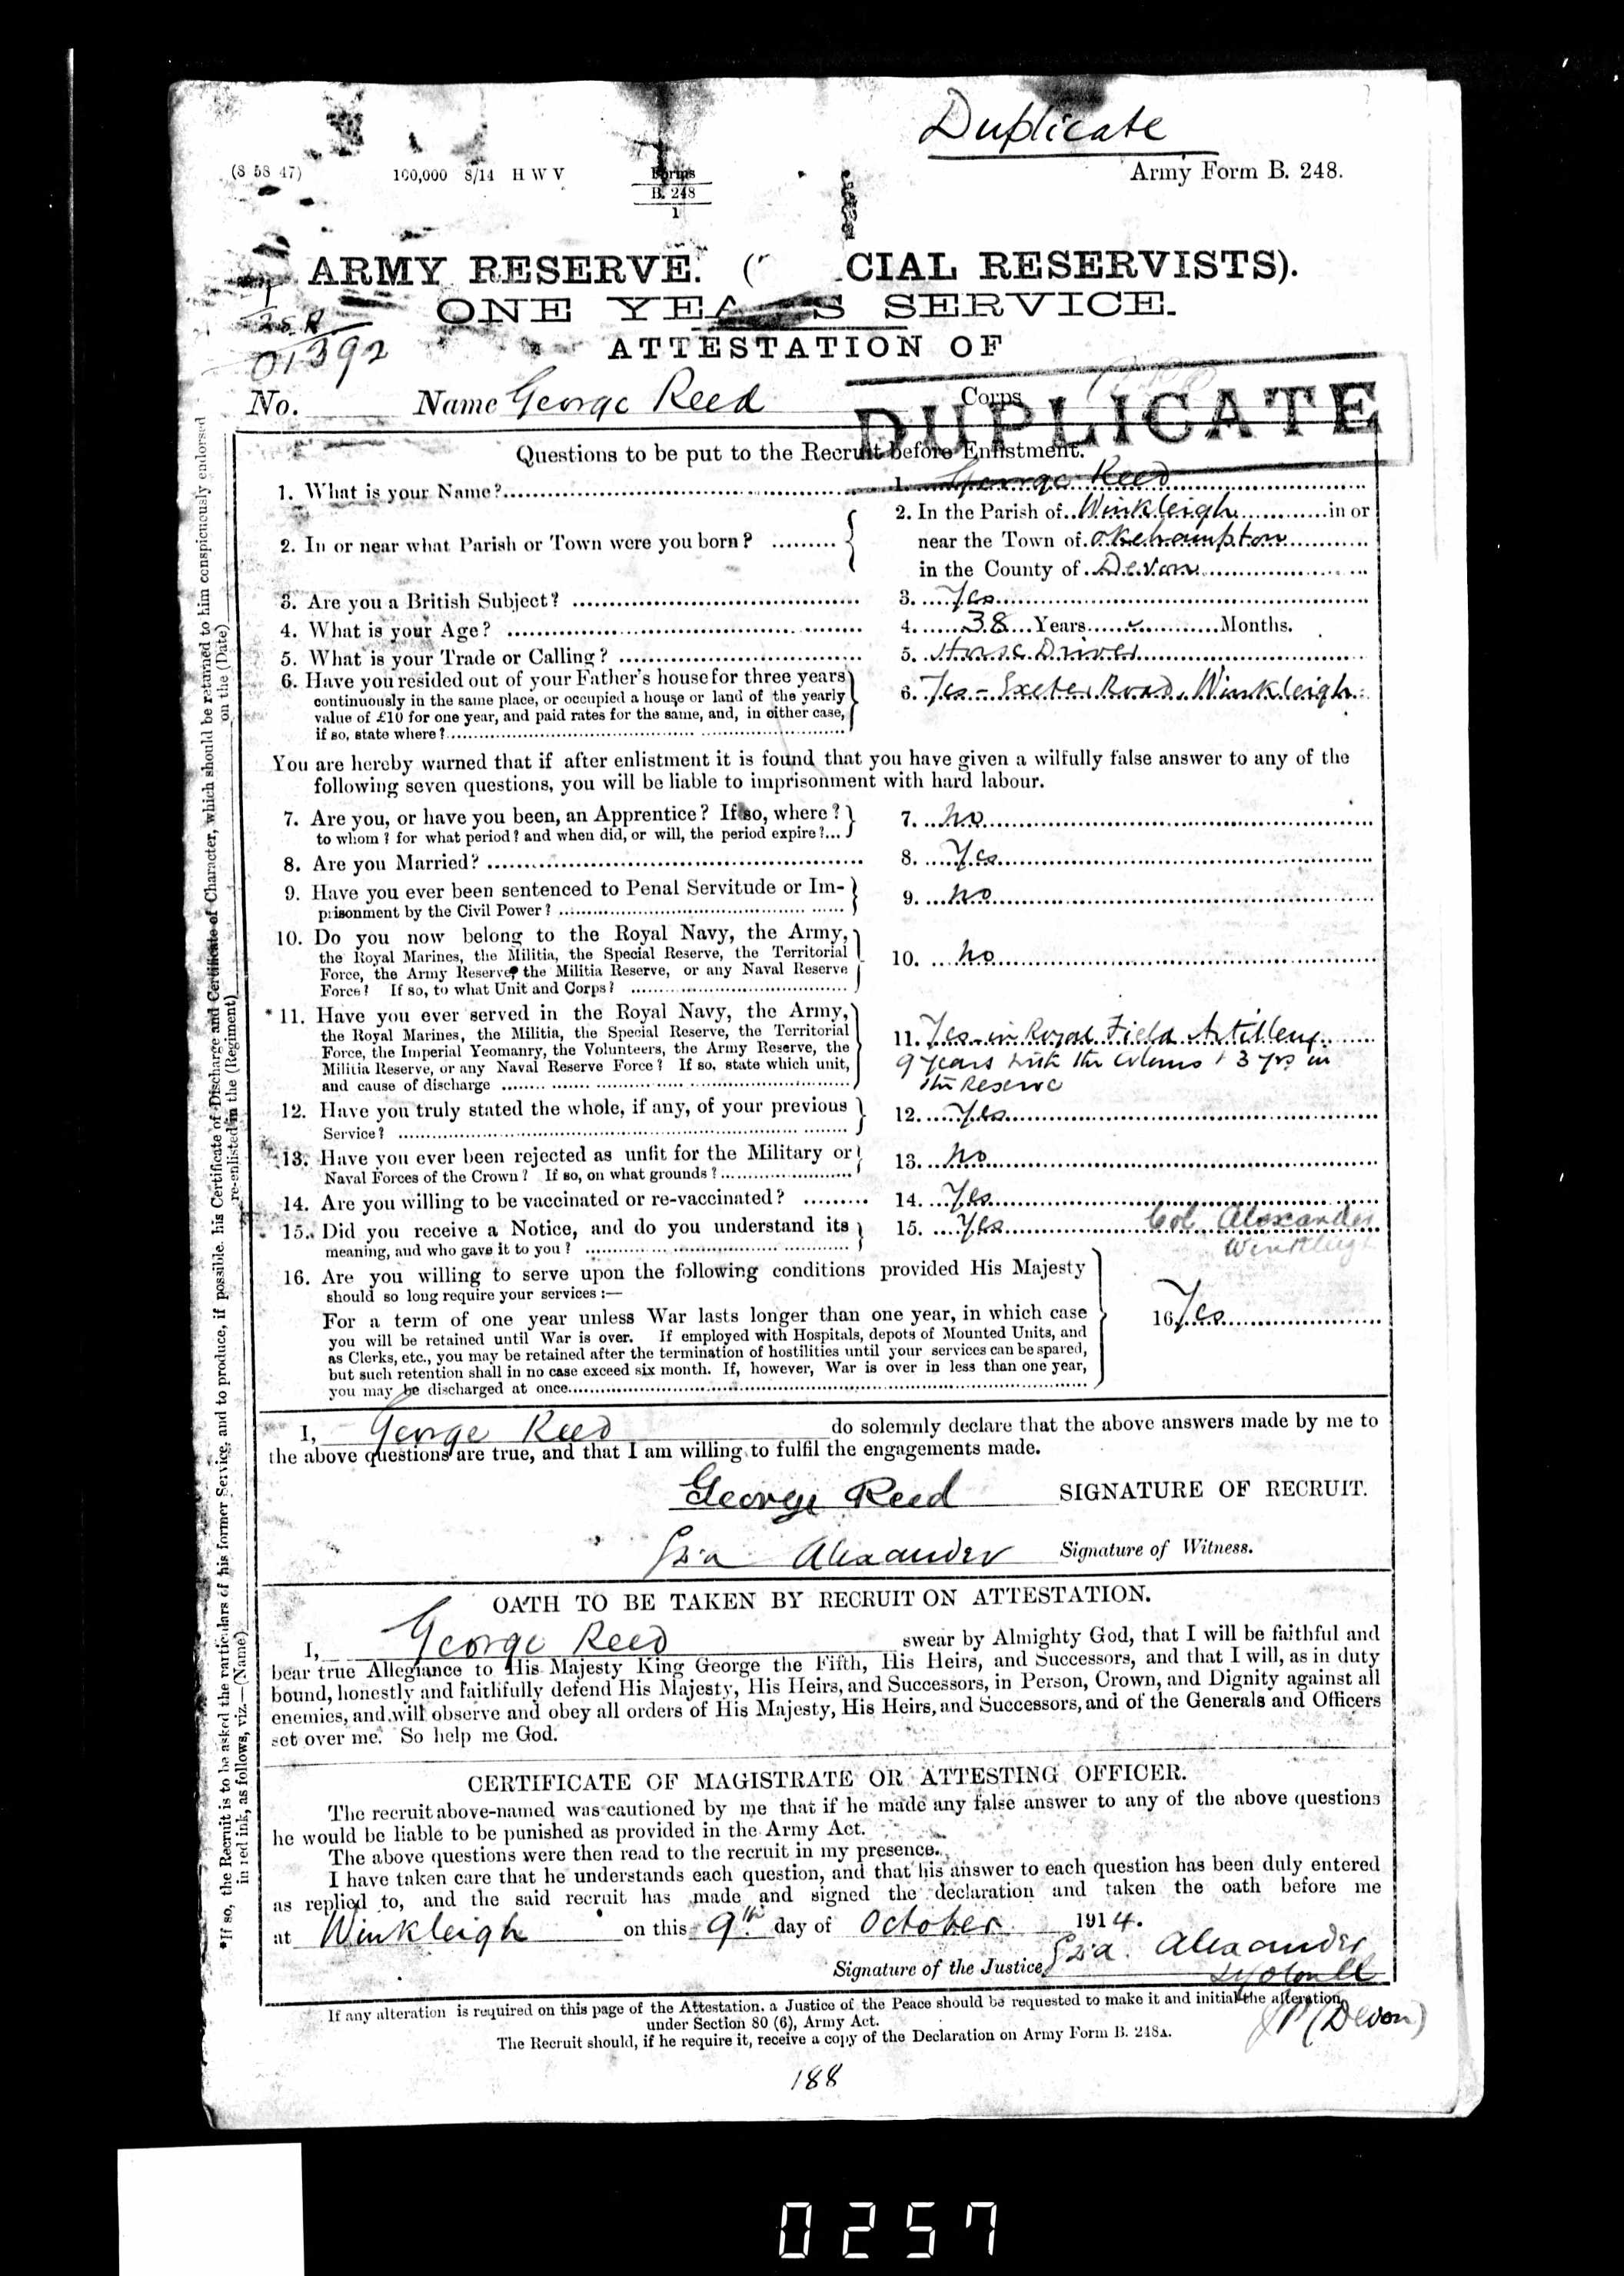 Duplicate
(8 58 47) 100,000 8/14 H W V Forms
B. 248
1
Army Form B. 248.
ARMY RESERVE. ( CIAL RESERVISTS).
ONE YEA S SERVICE.
ATTESTATION OF
1
2SR
01392
No. Name George Reed Corps
DUPLICATE
Questions to be put to the Recruit before Enlistment.
1. What is your Name? 1. George Reed
2. In or near what Parish or Town were you born? 2. In the Parish of Winkleigh in or
near the Town of Okehampton
in the County of Devon
3. Are you a British Subject? 3. Yes
4. What is your Age? 4. 38 Years Months.
5. What is your Trade or Calling? 5. Horse Driver
6. Have you resided out of your Father's house for three years 6. Yes - Exeter Road, Winkleigh.
continuously in the same place, or occupied a house or land of the yearly
value of £10 for one year, and paid rates for the same, and, in either case,
if so, state where?
You are hereby warned that if after enlistment it is found that you have given a wilfully false answer to any of the
following seven questions, you will be liable to imprisonment with hard labour.
7. Are you, or have you been, an Apprentice? If so, where? 7. No
to whom? for what period? and when did, or will, the period expire?...
8. Are you Married? 8. Yes
9. Have you ever been sentenced to Penal Servitude or Im- 9. No
prisonment by the Civil Power?
10. Do you now belong to the Royal Navy, the Army, 10. No
the Royal Marines, the Militia, the Special Reserve, the Territorial
Force, the Army Reserve, the Militia Reserve, or any Naval Reserve
Force? If so, to what Unit and Corps?
* 11. Have you ever served in the Royal Navy, the Army, 11. Yes - in Royal Field Artillery
the Royal Marines, the Militia, the Special Reserve, the Territorial 9 years with the Colours + 3 yrs in
Force, the Imperial Yeomanry, the Volunteers, the Army Reserve, the the Reserve
Militia Reserve, or any Naval Reserve Force? If so, state which unit,
and cause of discharge
12. Have you truly stated the whole, if any, of your previous 12. Yes
Service?
13. Have you ever been rejected as unfit for the Military or 13. No
Naval Forces of the Crown? If so, on what grounds?
14. Are you willing to be vaccinated or re-vaccinated? 14. Yes
15. Did you receive a Notice, and do you understand its 15. Yes Col. Alexander
meaning, and who gave it to you? Winkleigh
16. Are you willing to serve upon the following conditions provided His Majesty 16. Yes
should so long require your services :—
For a term of one year unless War lasts longer than one year, in which case
you will be retained until War is over. If employed with Hospitals, depots of Mounted Units, and
as Clerks, etc., you may be retained after the termination of hostilities until your services can be spared,
but such retention shall in no case exceed six month. If, however, War is over in less than one year,
you may be discharged at once
I, George Reed do solemnly declare that the above answers made by me to
the above questions are true, and that I am willing to fulfil the engagements made.
George Reed SIGNATURE OF RECRUIT.
Alexander Signature of Witness.
OATH TO BE TAKEN BY RECRUIT ON ATTESTATION.
I, George Reed swear by Almighty God, that I will be faithful and
bear true Allegiance to His Majesty King George the Fifth, His Heirs, and Successors, and that I will, as in duty
bound, honestly and faithfully defend His Majesty, His Heirs, and Successors, in Person, Crown, and Dignity against all
enemies, and will observe and obey all orders of His Majesty, His Heirs, and Successors, and of the Generals and Officers
set over me. So help me God.
CERTIFICATE OF MAGISTRATE OR ATTESTING OFFICER.
The recruit above-named was cautioned by me that if he made any false answer to any of the above questions
he would be liable to be punished as provided in the Army Act.
The above questions were then read to the recruit in my presence.
I have taken care that he understands each question, and that his answer to each question has been duly entered
as replied to, and the said recruit has made and signed the declaration and taken the oath before me
at Winkleigh on this 9th day of October 1914.
Signature of the Justice Alexander
JP (Devon)
If any alteration is required on this page of the Attestation, a Justice of the Peace should be requested to make it and initial the alteration
under Section 80 (6), Army Act.
The Recruit should, if he require it, receive a copy of the Declaration on Army Form B. 248A.
188
*If so, the Recruit is to be asked the particulars of his former Service, and to produce, if possible, his Certificate of Discharge and Certificate of Character, which should be returned to him conspicuously endorsed
in red ink, as follows, viz.—(Name) re-enlisted in the (Regiment) on the (Date)
0257